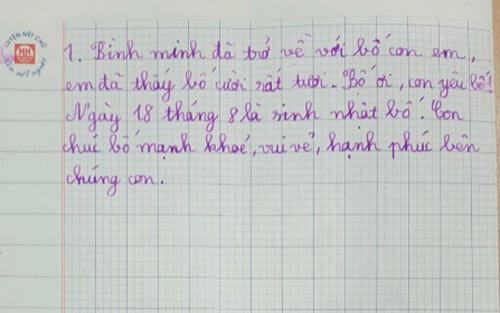 LUYỆN NÉT CHỮ
HH
1. Bình minh đã trở về với bố con em,
em đã thấy bố cười rất tươi. Bố ơi, con yêu bố!
Ngày 18 tháng 8 là sinh nhật bố. Con
chúc bố mạnh khoẻ, vui vẻ, hạnh phúc bên
chúng con.